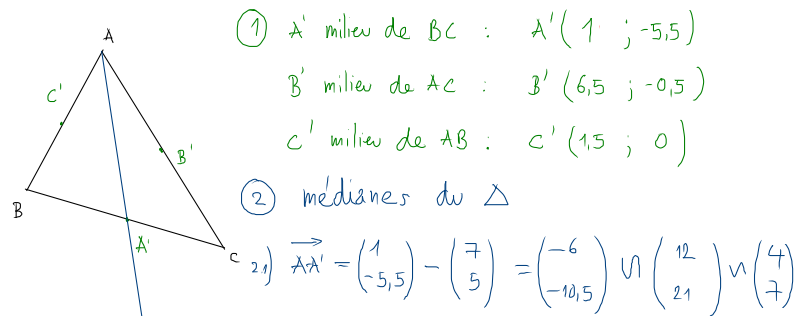 A
C'
B'
B
A'
C
① A' milieu de BC : A'(1 ; -5,5)
B' milieu de AC : B'(6,5 ; -0,5)
C' milieu de AB : C'(1,5 ; 0)
② médianes du Δ
2.1) $\overrightarrow{AA'} = \begin{pmatrix} 1 \\ -5,5 \end{pmatrix} - \begin{pmatrix} 7 \\ 5 \end{pmatrix} = \begin{pmatrix} -6 \\ -10,5 \end{pmatrix} \backsim \begin{pmatrix} 12 \\ 21 \end{pmatrix} \sim \begin{pmatrix} 4 \\ 7 \end{pmatrix}$